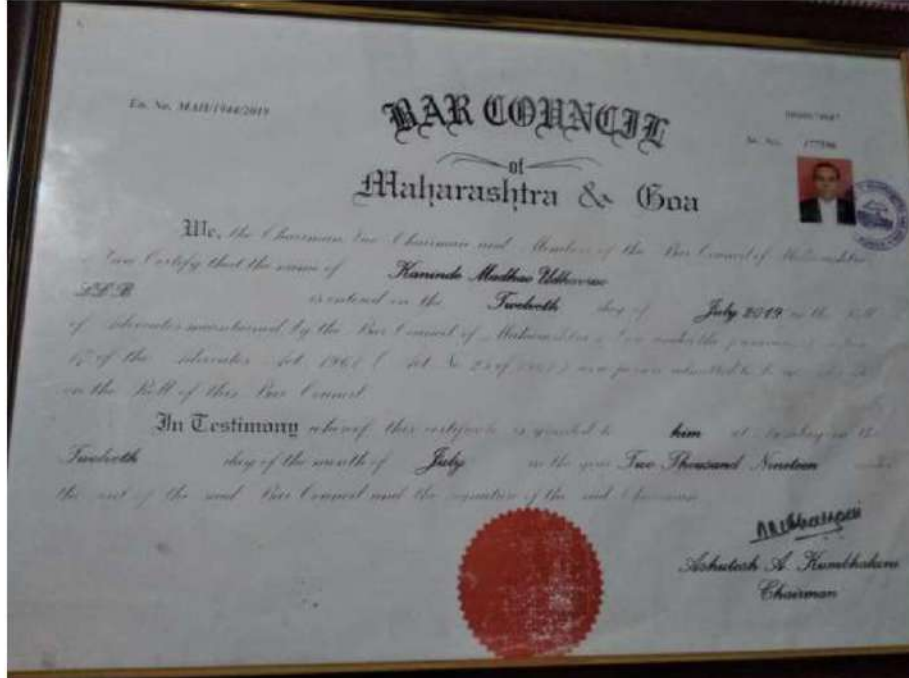 En. No. MAH/1944/2019
Sr. No.
BAR COUNCIL
of
Maharashtra & Goa
We, the Chairman Vice Chairman and Members of the Bar Council of Maharashtra
Goa Certify that the name of Kaninde Madhav Udhavrao
LL.B is entered on the Twelveth day of July 2019 in the Roll
of Advocates maintained by the Bar Council of Maharashtra & Goa under the section
17 of the Advocates Act 1961 ( Act No 25 of 1961 ) as a person admitted to be an
on the Roll of this Bar Council.
In Testimony whereof this certificate is granted to him at on the
Twelveth day of the month of July in the year Two Thousand Nineteen under
the seal of the said Bar Council and the signature of the said Chairman
Ashutosh A. Kumbhakoni
Chairman